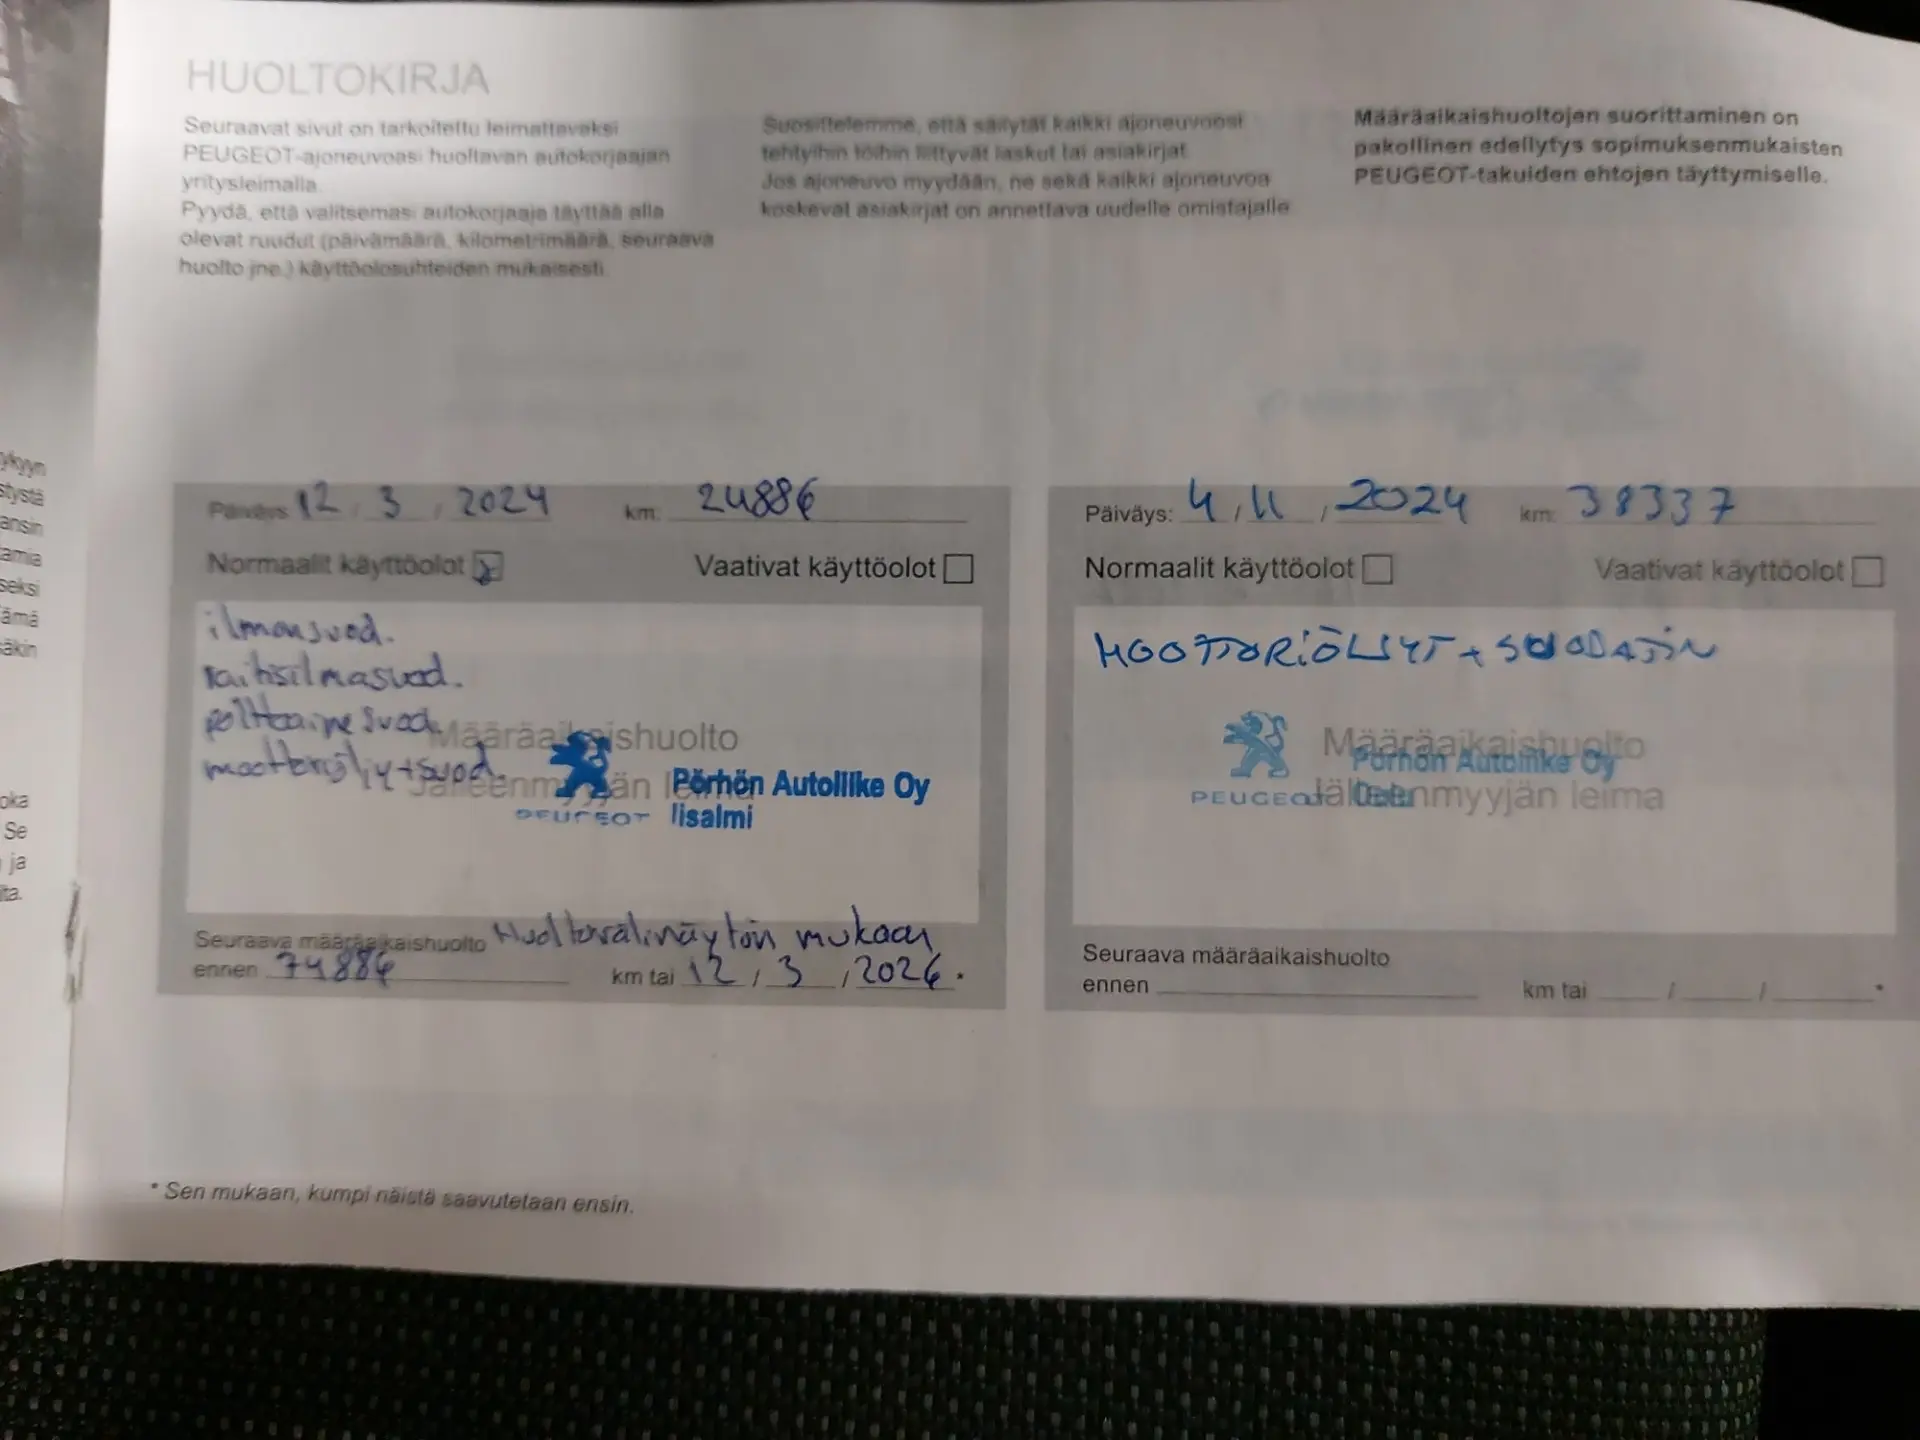 HUOLTOKIRJA
Seuraavat sivut on tarkoitettu leimattaveksi
PEUGEOT-ajoneuvoasi huoltavan autokorjaajan
yritysleimalla.
Pyydä, että valitsemasi autokorjaaja täyttää alla
olevat ruudut (päivämäärä, kilometrimäärä, seuraava
huolto jne.) käyttöolosuhteiden mukaisesti.
Suosittelemme, että säilytät kaikki ajoneuvoosi
tehtyihin töihin liittyvät laskut tai asiakirjat.
Jos ajoneuvo myydään, ne sekä kaikki ajoneuvoa
koskevat asiakirjat on annettava uudelle omistajalle.
Määräaikaishuoltojen suorittaminen on
pakollinen edellytys sopimuksenmukaisten
PEUGEOT-takuiden ehtojen täyttymiselle.
ykyyn
stystä
ansin
tamia
seksi
ämä
säkin
oka
Se
ja
lta.
Päiväys: 12 / 3 / 2024 km: 24886
Normaalit käyttöolot Vaativat käyttöolot
ilmansuod.
raitisilmasuod.
polttoainesuod.
moottoriöljy+suod.
Määräaikaishuolto
Jälleenmyyjän leima
PEUGEOT
Pörhön Autoliike Oy
Iisalmi
Seuraava määräaikaishuolto Huoltovälinäytön mukaan
ennen 74886 km tai 12 / 3 / 2026 .
Päiväys: 4 / 11 / 2024 km: 38337
Normaalit käyttöolot Vaativat käyttöolot
MOOTTORIÖLJYT + SUODATIN
Määräaikaishuolto
Jälleenmyyjän leima
PEUGEOT
Pörhön Autoliike Oy
Seuraava määräaikaishuolto
ennen km tai / / *
* Sen mukaan, kumpi näistä saavutetaan ensin.